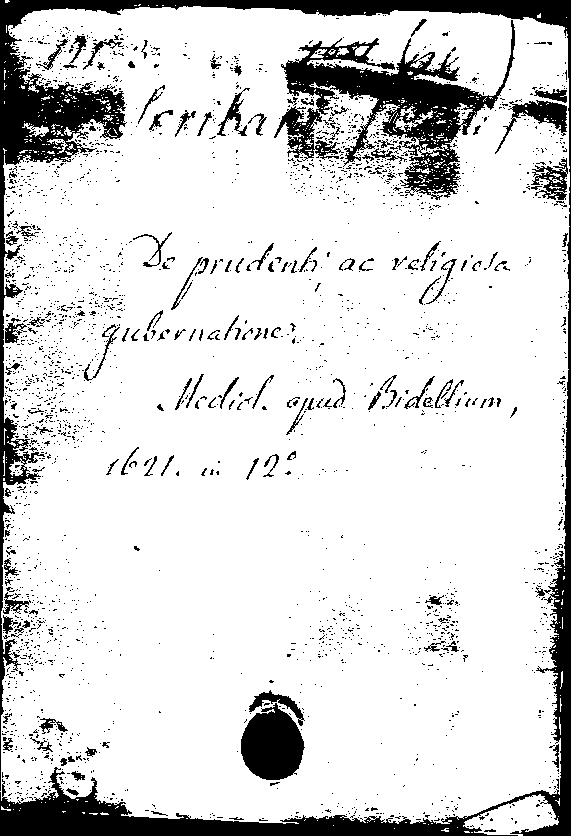 121. 3.
Scribani
De prudenti ac religiosa
gubernatione.
Mediol. apud Bidellium,
1621. in 12.º